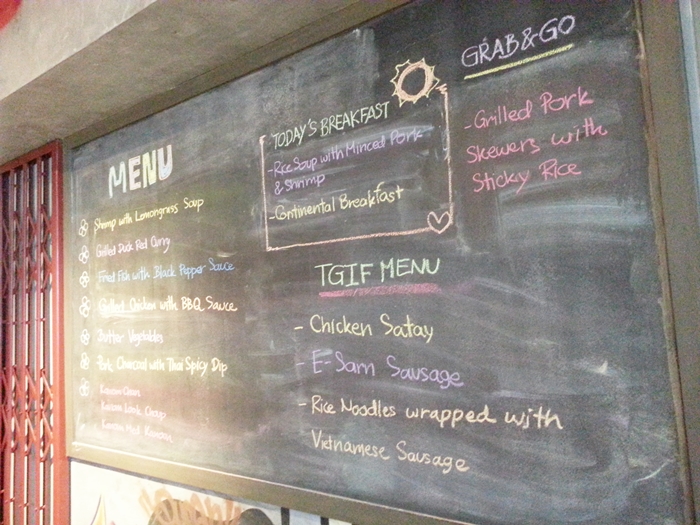 MENU
Shrimp with Lemongrass Soup
Grilled Duck Red Curry
Fried Fish with Black Pepper Sauce
Grilled Chicken with BBQ Sauce
Butter Vegetables
Pork Charcoal with Thai Spicy Dip
Kanom
Kanom Look Choup
Kanom Med Kanoon
TODAY'S BREAKFAST
-Rice Soup with Minced Pork
& Shrimp
-Continental Breakfast
TGIF MENU
- Chicken Satay
- E-Sarn Sausage
- Rice Noodles wrapped with
Vietnamese Sausage
GRAB & GO
-Grilled Pork
Skewers with
Sticky Rice